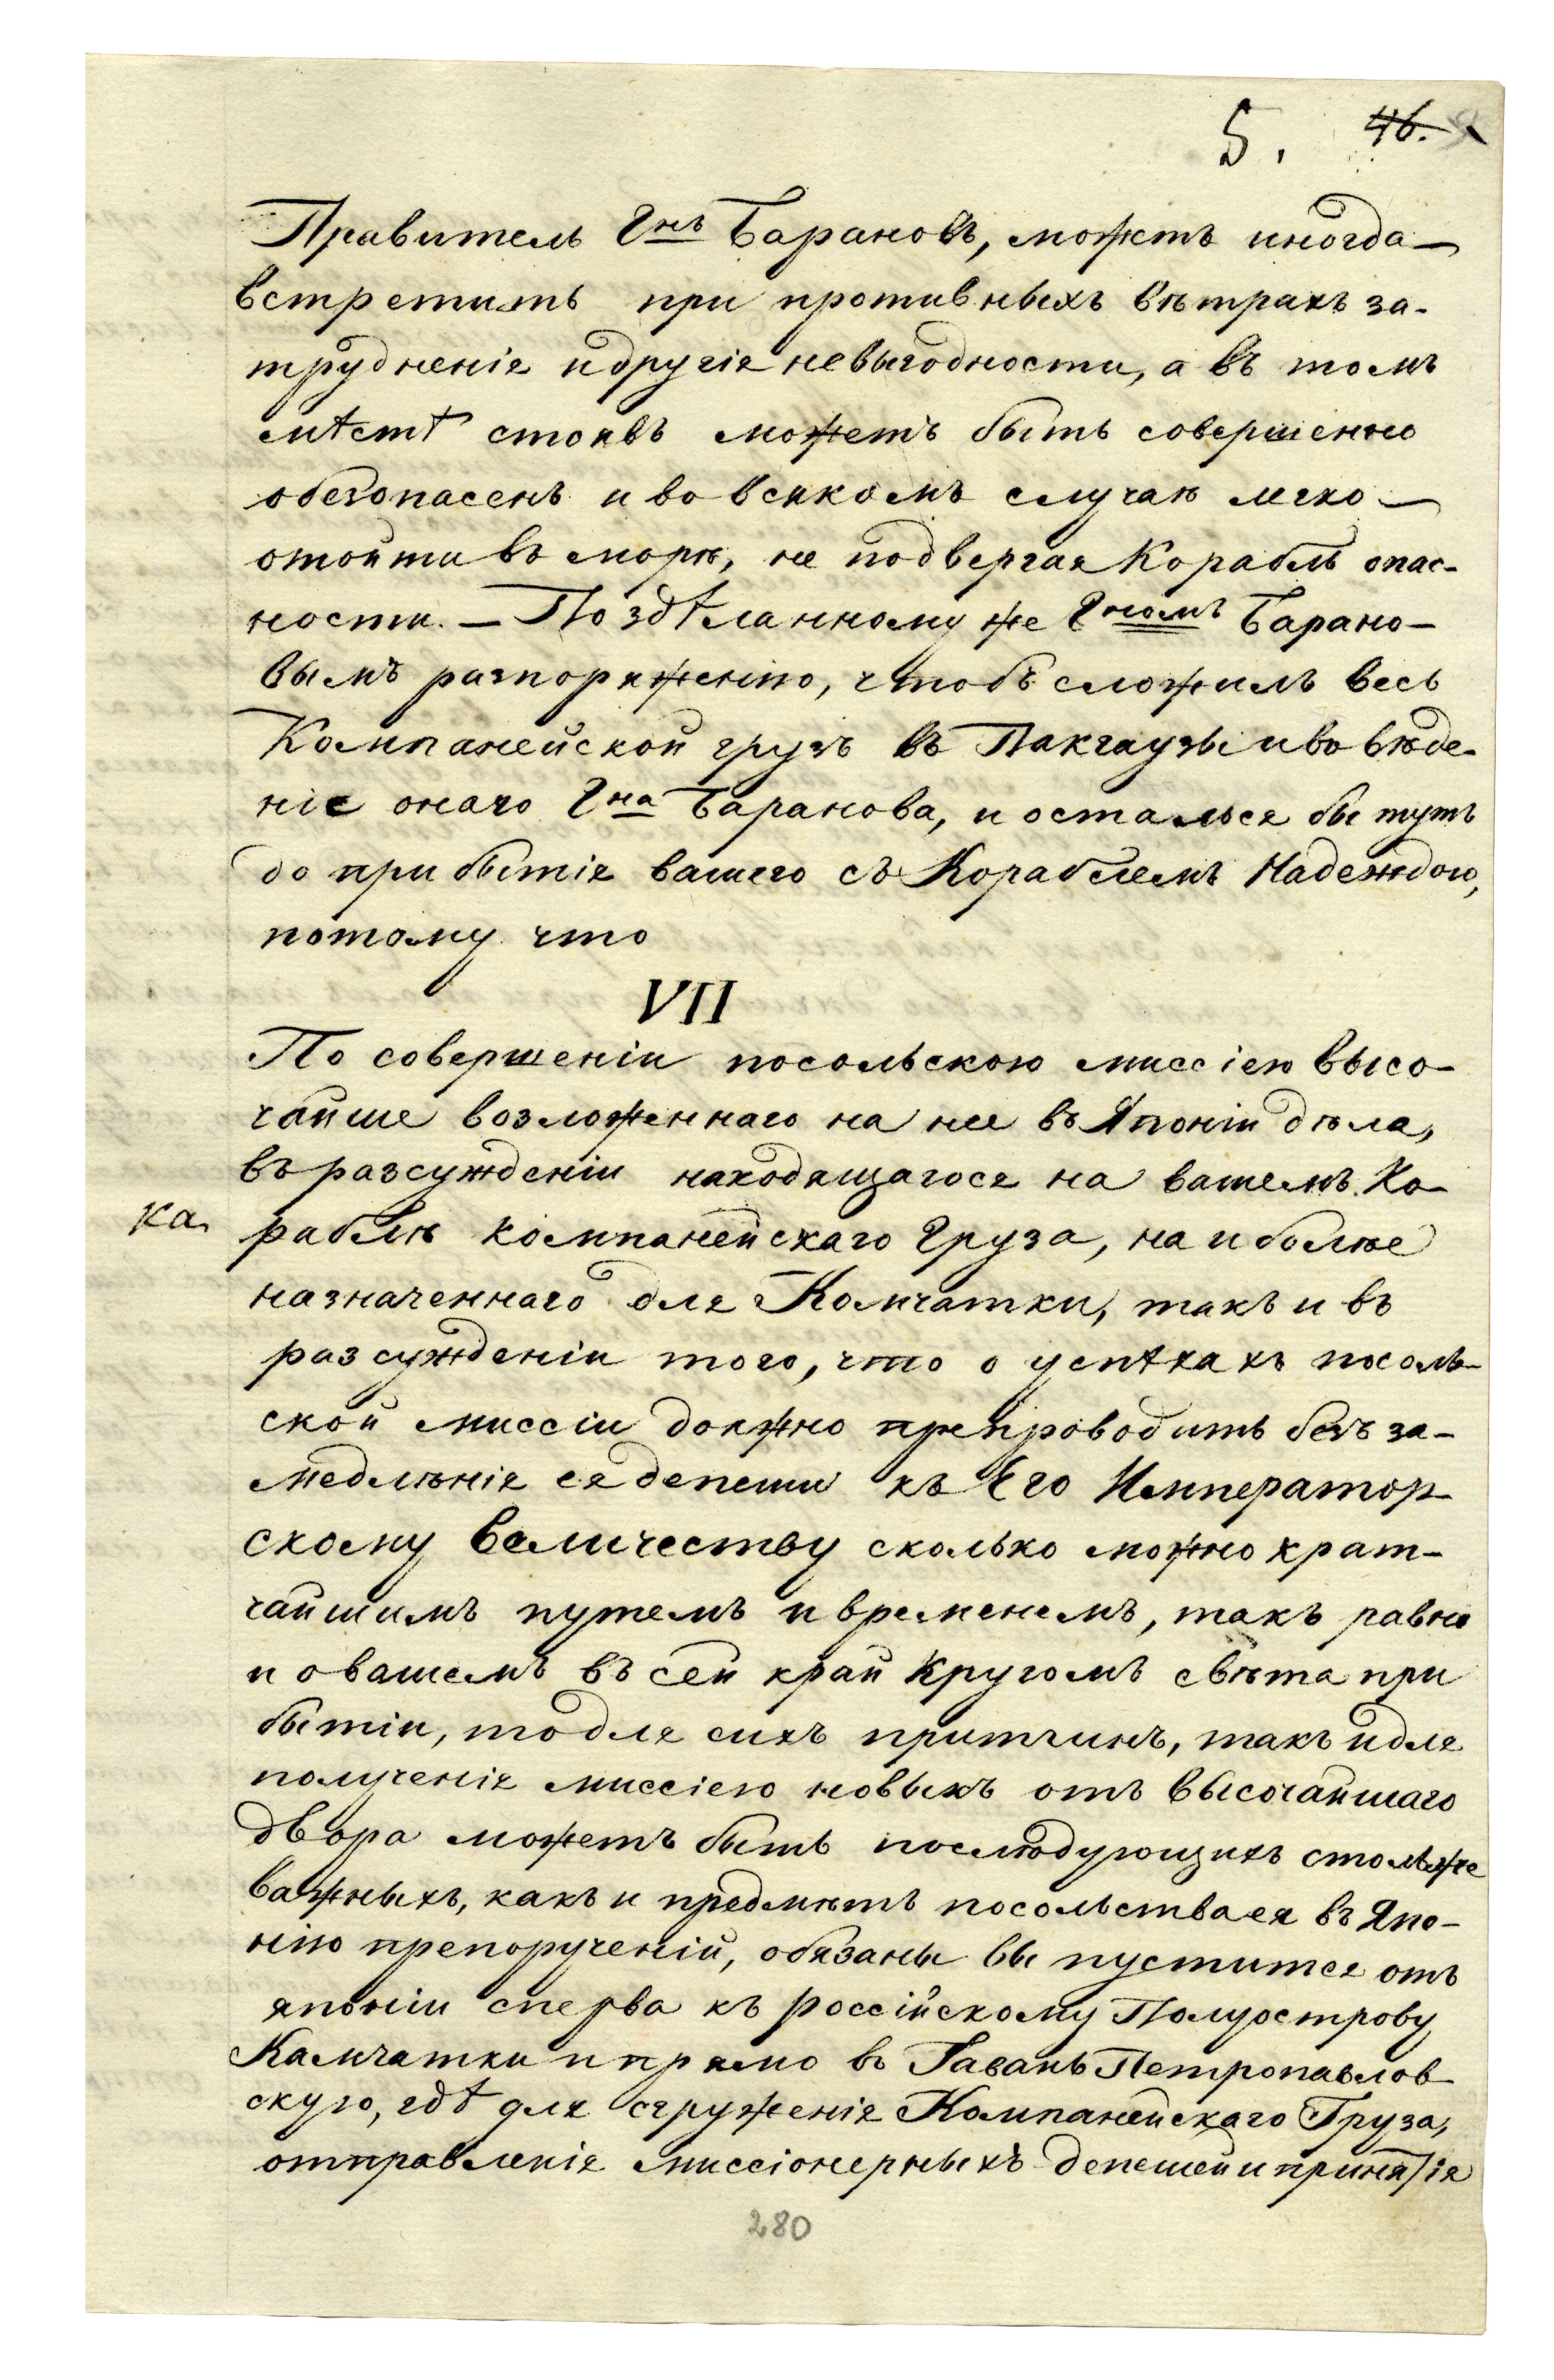 5. 46.
Правитель Гнъ Барановъ, можетъ иногда—
встретить при противныхъ вѣтрахъ за-
трудненія идругія невыгодности, а въ томъ
мѣстѣ стоявъ можетъ быть совершенно
обезопасенъ и во всякомъ случаѣ легко—
отойти въ морѣ, не подвергая Корабль опас-
ности.— По здѣланному же Гномъ Барано-
вымъ разпоряженію, чтобъ сложилъ весь
Компанейской грузъ въ Пакгаузы и во вѣде-
ніе онаго Гна Баранова, и остался бы тутъ
до прибытія вашего съ Кораблемъ Надеждою,
потому что
VII
По совершеніи посольскою миссіею высо-
чайше возложеннаго на нее въ Японіи дѣла,
въ разсужденіи находящагося на вашемъ Ко-
ка раблѣ компанейскаго Груза, наиболѣе
назначеннаго для Камчатки, такъ и въ
разсужденіи того, что о успѣхахъ посоль-
ской миссіи должно препроводить безъ за-
медлѣнія ея депеши къ Его Император-
скому Величеству сколько можно крат-
чайшимъ путемъ и временемъ, такъ равно
и о вашемъ въ сей край Кругомъ свѣта при
бытіи, то для сихъ притчинъ, такъ идля
полученія миссіею новыхъ отъ высочайшаго
двора можетъ быть послѣдующихъ столь же
важныхъ, какъ и предмѣтъ посольства ея въ Япо-
нію препорученій, обязаны вы пустится отъ
японіи сперва къ россійскому Полуострову
Камчатки и прямо въ Гавань Петропавлов-
скую, гдѣ для сгруженія Компанейскаго Груза,
отправленія миссіонерныхъ депешей и принятія
280